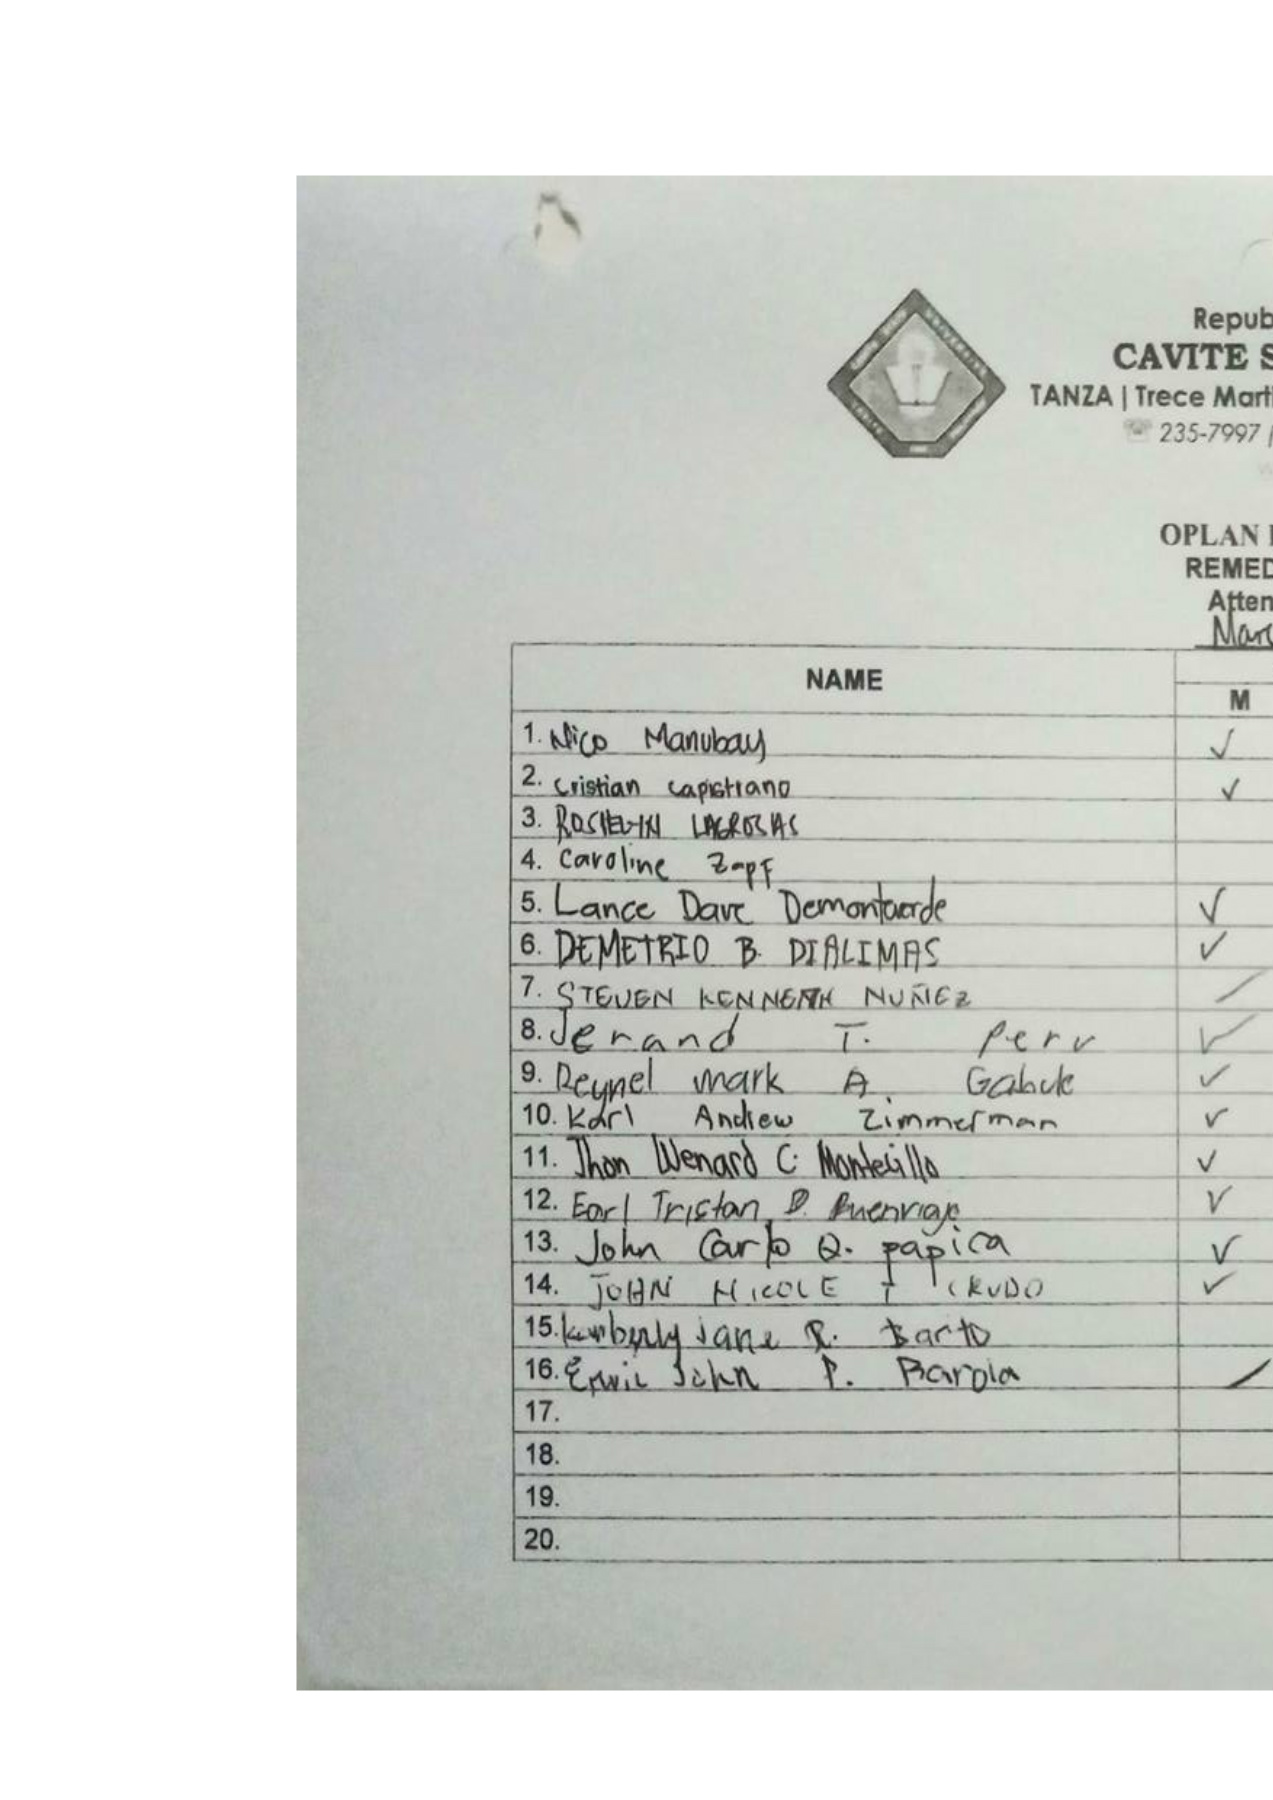 Repub
CAVITE S
TANZA | Trece Marti
235-7997 /
OPLAN
REMED
Atten
Marc
NAME
M
1. Nico Manubay ✓
2. Cristian Capistrano ✓
3. ROSHELYN LAGROSAS
4. Caroline Zapf
5. Lance Dave Demontaverde ✓
6. DEMETRIO B. DIALIMAS ✓
7. STEVEN KENNETH NUÑEZ /
8. Jerand T. Peru ✓
9. Reynel mark A. ✓
10. Karl Andrew Zimmerman ✓
11. Jhon Wenard C. Montecillo ✓
12. Earl Tristan ✓
13. John Carlo Q. papica ✓
14. JOHN NICOLE CRUDO ✓
15. Kimberly Jane R. Barto
16. John P. Barola /
17.
18.
19.
20.